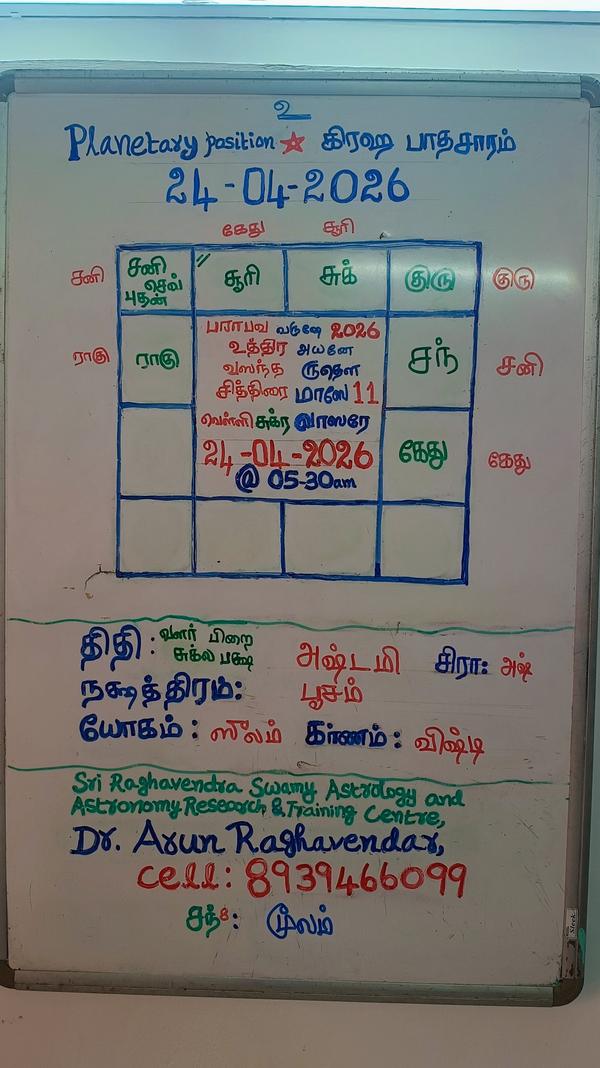 உ
Planetary position ☆ கிரஹ பாதசாரம்
24-04-2026
கேது சூரி
சனி சனி செவ் புதன் சூரி சுக் குரு குரு
பராபவ வருஷே 2026
உத்திர அயனே
ராகு ராகு வஸந்த ருதௌ சந் சனி
சித்திரை மாஸே 11
வெள்ளி சுக்ர வாஸரே
24-04-2026 கேது கேது
@ 05-30am
திதி : வளர் பிறை சுக்ல பக்ஷ அஷ்டமி சிரா: அஷ்
நக்ஷத்திரம்: பூசம்
யோகம் : ஸூலம் கர்ணம் : விஷ்டி
Sri Raghavendra Swamy Astrology and
Astronomy Research & Training Centre,
Dr. Arun Raghavendar,
Cell: 8939466099
சந்8: மூலம்